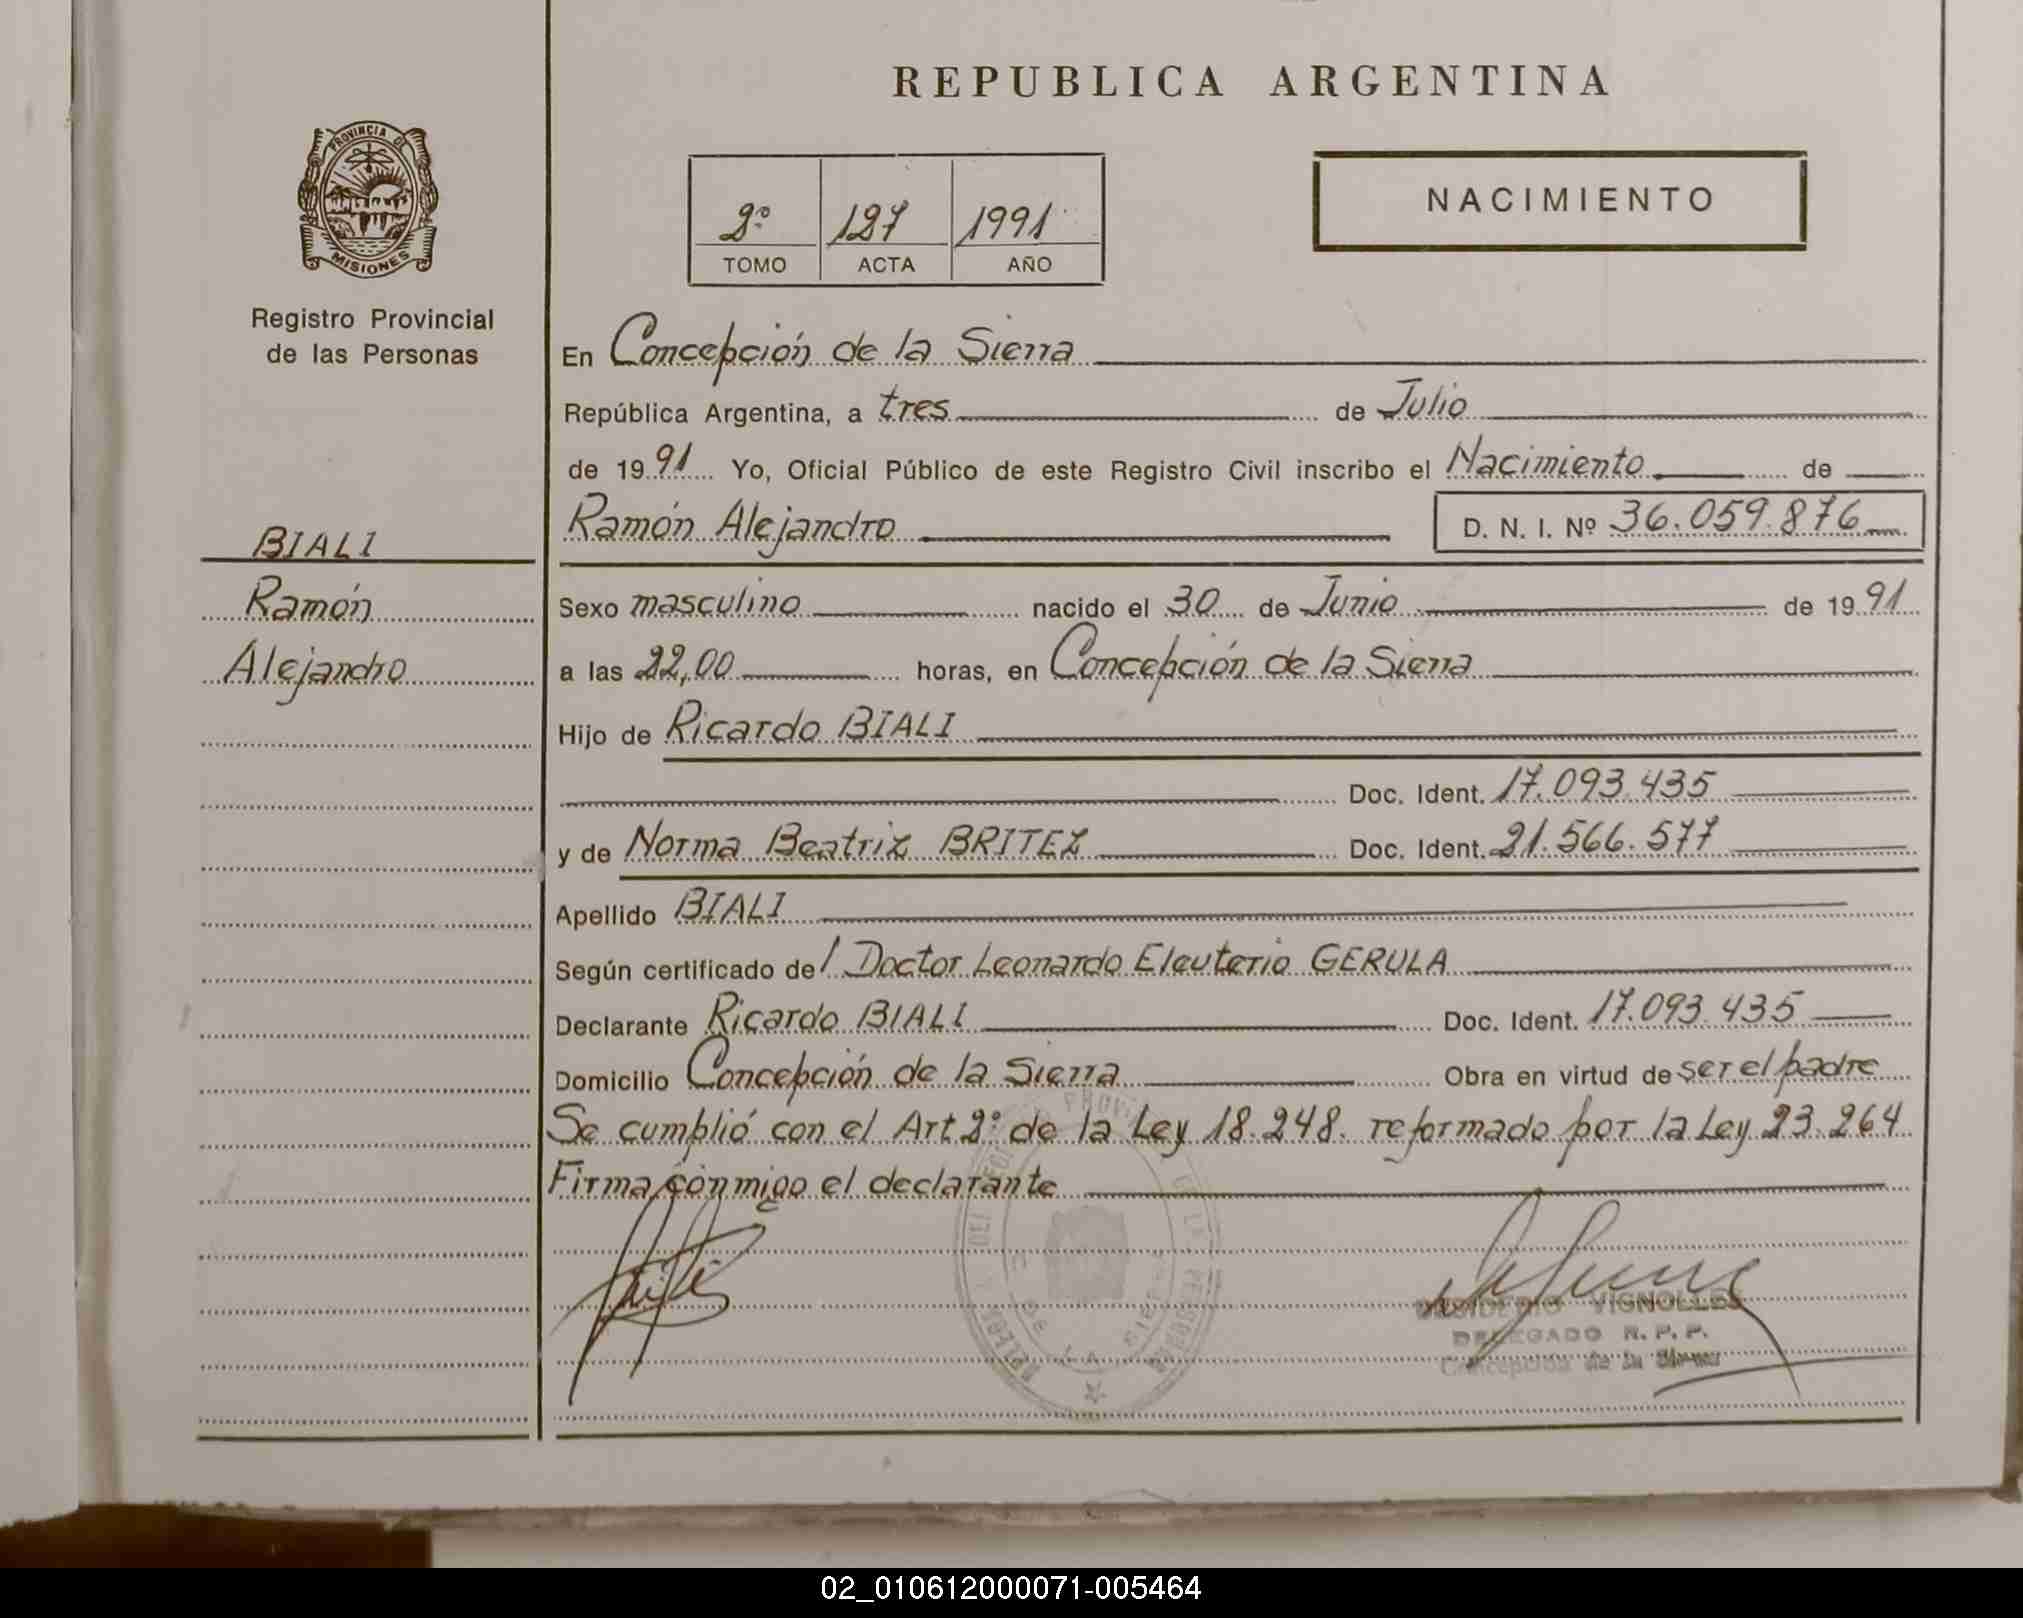 REPUBLICA ARGENTINA
PROVINCIA DE
MISIONES
Registro Provincial
de las Personas
2º 127 1991
TOMO ACTA AÑO
NACIMIENTO
En Concepción de la Sierra
República Argentina, a tres de Julio
de 1991 Yo, Oficial Público de este Registro Civil inscribo el Nacimiento de
Ramón Alejandro D. N. I. Nº 36.059.876
BIALI
Ramón
Alejandro
Sexo masculino nacido el 30 de Junio de 1991
a las 22,00 horas, en Concepción de la Sierra
Hijo de Ricardo BIALI
Doc. Ident. 17.093.435
y de Norma Beatriz BRITEZ Doc. Ident. 21.566.577
Apellido BIALI
Según certificado de/ Doctor Leonardo Eleuterio GERULA
Declarante Ricardo BIALI Doc. Ident. 17.093.435
Domicilio Concepción de la Sierra Obra en virtud de ser el padre
Se cumplió con el Art 2º de la Ley 18.248. reformado por la Ley 23.264
Firma conmigo el declarante
DESIDERIO VIGNOLLES
DELEGADO R. P. P.
Concepción de la Sierra
02_010612000071-005464